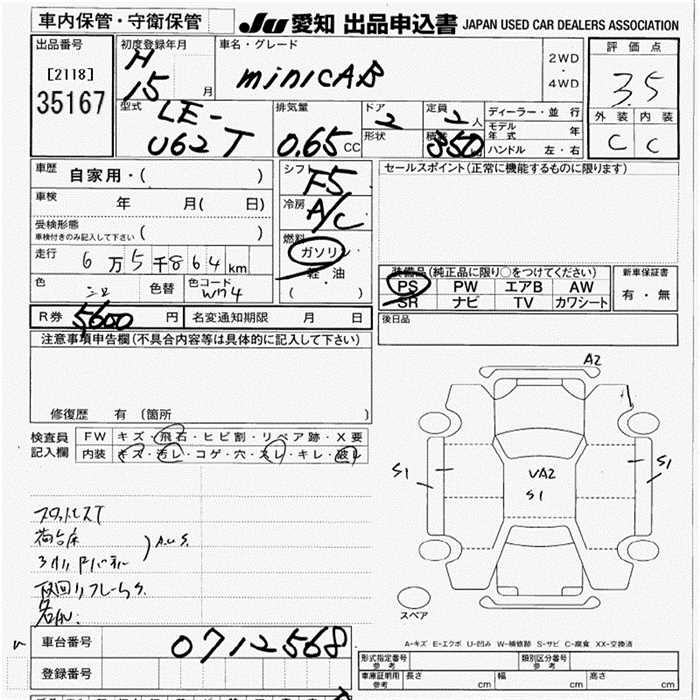 車内保管・守衛保管
JU 愛知 出品申込書 JAPAN USED CAR DEALERS ASSOCIATION
出品番号
[2118]
35167
初度登録年月
H
15 月
車名・グレード
miniCAB
2WD
・
4WD
評価点
3.5
外装 内装
C C
型式
LE-
U62T
排気量
0.65 CC
ドア
2
形状
定員
2 人
積載
350
ディーラー・並行
モデル年式 年
ハンドル 左・右
車歴
自家用・( )
車検
年 月( 日)
受検形態
車検付きのみ記入して下さい ( )
走行
6万5千864km
色 色替 色コード
W74
シフト
F5
冷房
A/C
燃料
ガソリン
軽・油
( )
セールスポイント(正常に機能するものに限ります)
装備品(純正品に限り○をつけてください)
PS PW エアB AW
SR ナビ TV カワシート
新車保証書
有・無
R券 5600 円 名変通知期限 月 日
後日品
注意事項申告欄(不具合内容等は具体的に記入して下さい)
修復歴 有 (箇所 )
検査員
記入欄
FW キズ・飛石・ヒビ割・リペア跡・X要
内装 キズ・汚レ・コゲ・穴・スレ・キレ・破レ
荷台床
A2
S1
S1
UA2
S1
スペア
A-キズ E-エクボ U-凹み W-補修跡 S-サビ C-腐食 XX-交換済
車台番号 0712568
登録番号
形式指定番号
参考
類別区分番号
参考
車庫証明用
参考
長さ cm 幅 cm 高さ cm